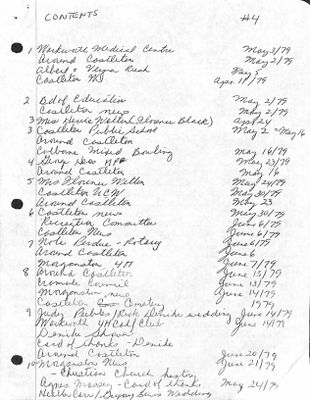 CONTENTS #4
1 Warkworth Medical Centre May 3/79
Around Castleton May 2/79
Albert & Velma May 5
Castleton WI Apr. 19/79
2 Bd of Education May 2/79
Castleton news May 2/79
3 Mrs Melton (Florence Black) Apr 24
3 Castleton Public School May 2 - May 16
Around Castleton
Colborne Mixed Bowling May 16/79
4 George Hees MP May 23/79
Around Castleton May 16
5 Mrs Florence May 24/79
Castleton UCW May 30/79
Around Castleton May 23
6 Castleton news May 30/79
Recreation Committee June 6/79
Castleton News June 6/79
7 Note Perdue - Rotary June 6/79
Around Castleton June 6
Morganston 4H June 7/79
8 Around Castleton June 13/79
Cramahe Council June 13/79
Morganston news June 14/79
Castleton Cemetery 1979
9 Judy Peebles/Rick Denike wedding June 14/79
Warkworth 4H Calf Club June 14/79
Denike Shower
Card of thanks - Denike
Around Castleton June 20/79
10 Morganston News June 21/79
- Christian Church history
Agnes Massey - Card of thanks May 24/79
Wedding